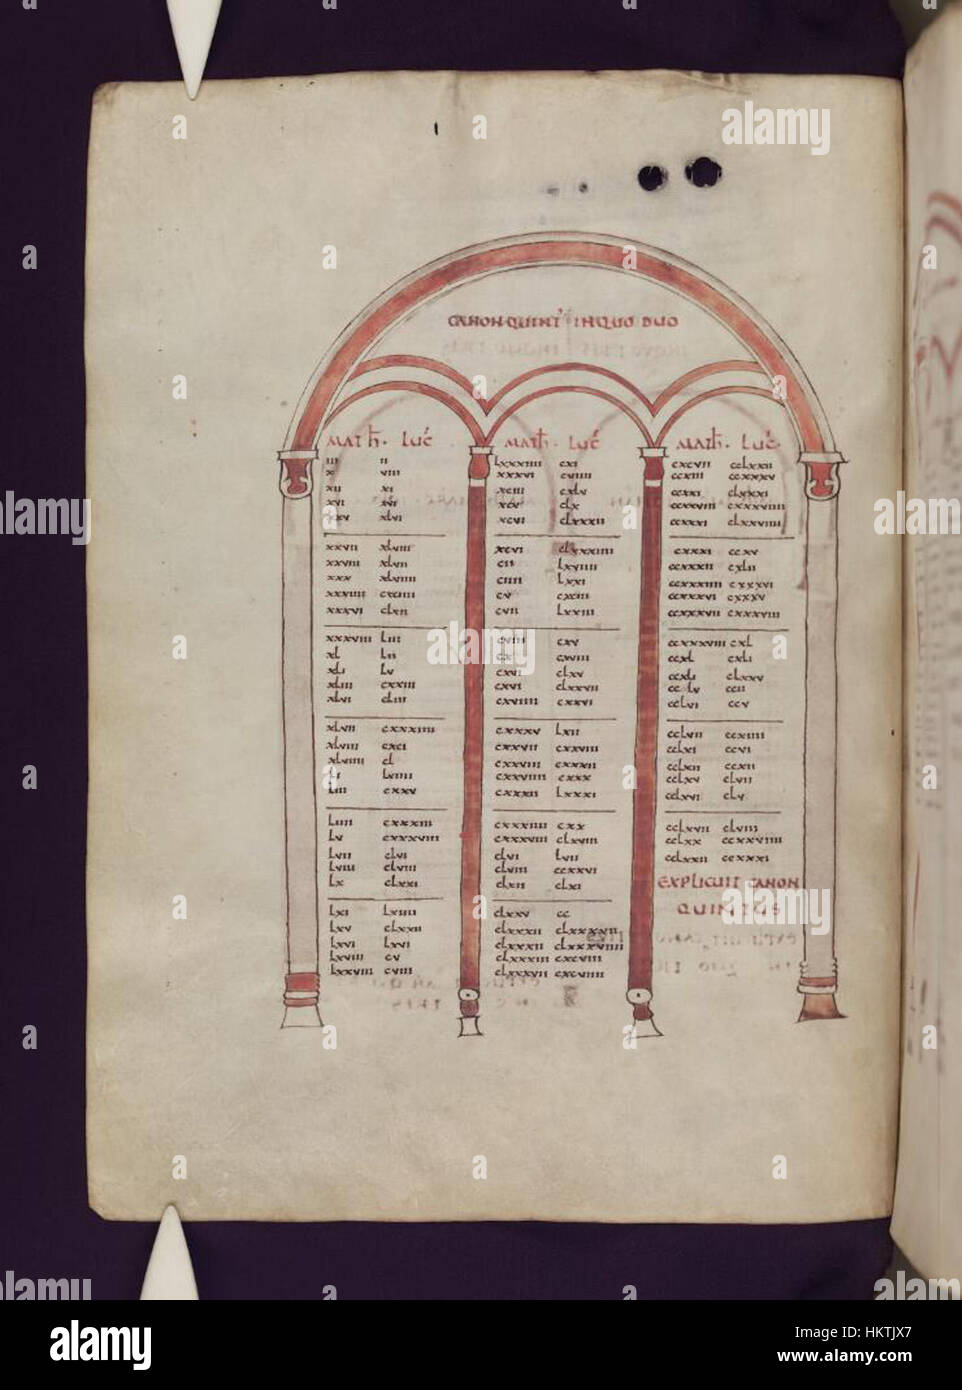 CANON QUINT' IN QUO DUO
MATH. LUC
III II
X VIII
XII XI
XVI XVI
XXV XLVI
XXVII XLVIII
XXVIII XLVII
XXX XLVIIII
XXXIIII CXCIIII
XXXVI CLXII
XXXVIII LIII
XL LII
XLI LV
XLIII CXXIII
XLVI CLIII
XLVII CXXXIIII
XLVIII CXCI
XLVIIII CL
LI LVIIII
LIII CXXV
LIIII CXXXIII
LV CXXXVIII
LVII CLVI
LVIII CLVIII
LX CLXXI
LXI LXIIII
LXV CLXXII
LXVI LXVI
LXVIII CV
LXXVIII CVIII
MATH. LUC
LXXXIIII CXI
XXXVI CVIIII
XCIII CXLV
XCV CLX
XCVI CLXXXII
XCVI CLXXXIIII
CII LXVIIII
CIIII LXXI
CV CXCIII
CVII LXXIII
CVIII CXV
CX CXVIII
CXVI CLXXVII
CXVIIII CXXVI
CXXXV LXII
CXXVII CXXVIII
CXXVIII CXXXII
CXXVIIII CXXX
CXXXII LXXXI
CXXXIIII CXX
CXXXVIII CLXVIII
CLVI LVII
CLVIII CCXXVI
CLXII CLXI
CLXXV CC
CLXXXII CLXXXVII
CLXXXII CLXXXVIIII
CLXXXIII CXCVIII
CLXXXVII CXCVIIII
MATH. LUC
CXCVII CCLXXII
CCXIII CCXXXV
CCXXI CLXXXI
CCXXVIII CXXXVIIII
CCXXXI CLXXVIIII
CXXXI CCXV
CCXXXII CXLII
CCXXXIIII CXXXVI
CCXXXVI CXXXV
CCXXXVII CXXXVIII
CCXXXVIII CXL
CCXL CXLI
CCXLI CLXXV
CCLV CCII
CCLVI CCV
CCLVII CCXIIII
CCLXI CCVI
CCLXII CCXII
CCLXV CLVII
CCLXVI CLV
CCLXVII CLVIII
CCLXX CCXXVIIII
CCLXXII CCXXXI
EXPLICUIT CANON
QUINTUS
alamy
Image ID: HKTJX7
www.alamy.com